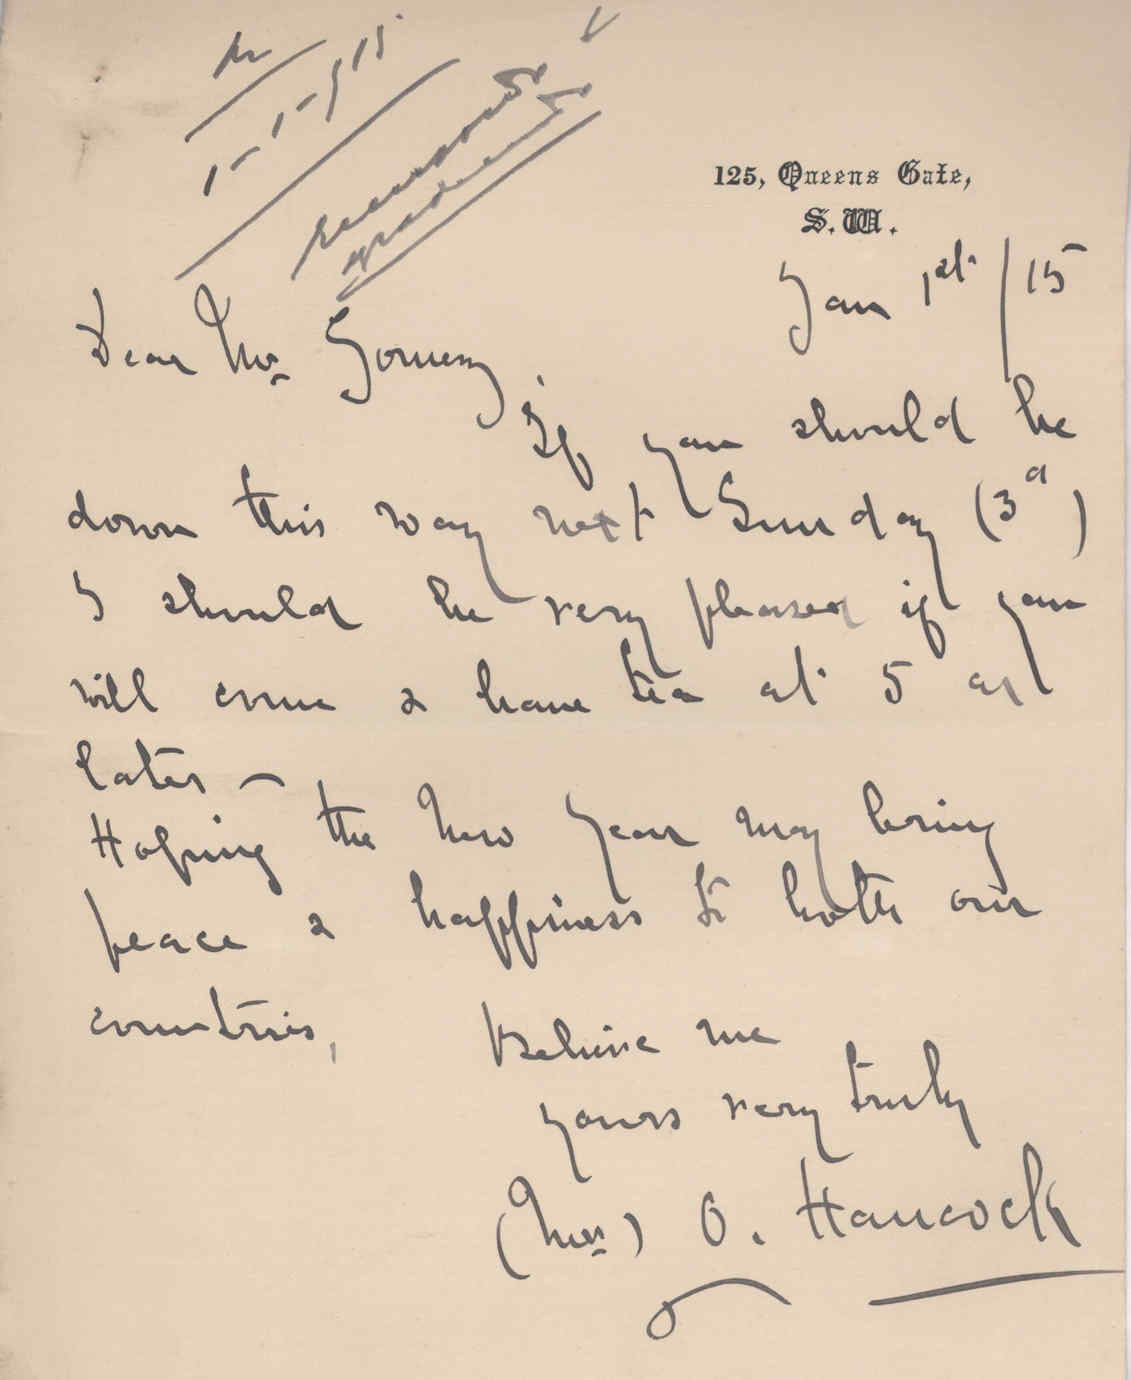 1-1-915
125, Queens Gate,
S.W.
Jan 1st/15
Dear Mr Gomez,
If you should be
down this way next Sunday (3d)
I should be very pleased if you
will come & have tea at 5 or
later —
Hoping the New Year may bring
peace & happiness to both our
countries,
Believe me
yours very truly
(Mrs) O. Hancock